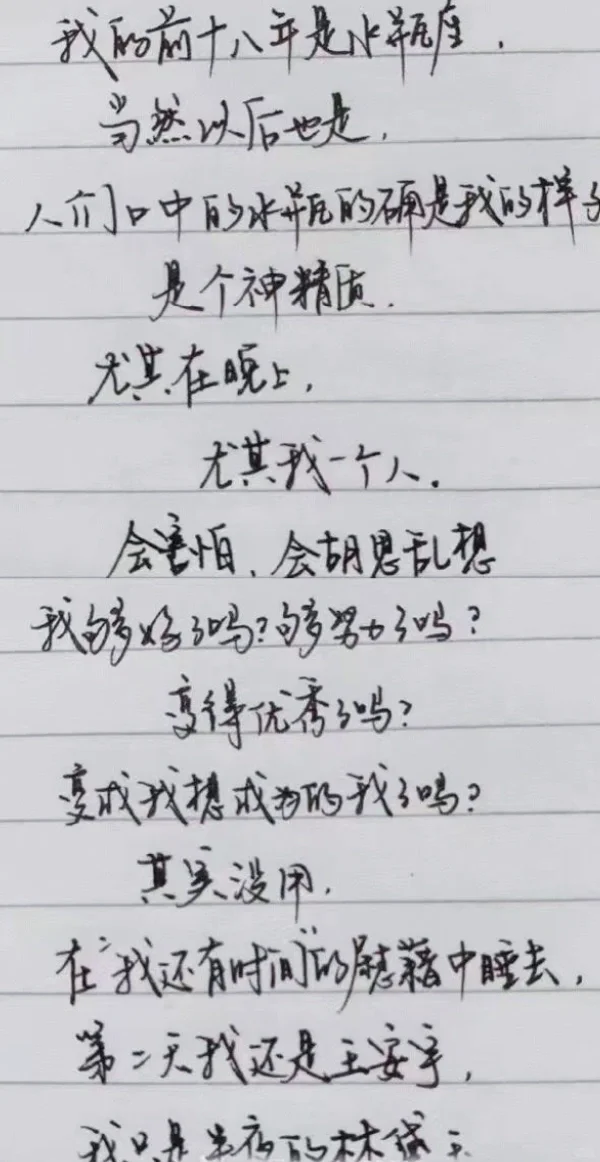 我的前十八年是水瓶座.
当然以后也是.
人们口中的水瓶的确是我的样子
是个神精质.
尤其在晚上,
尤其我一个人.
会害怕、会胡思乱想
我够好了吗?够努力了吗?
变得优秀了吗?
变成我想成为的我了吗?
其实没用.
在“我还有时间”的慰藉中睡去,
第二天我还是王安宇,
我只是半夜的林黛玉